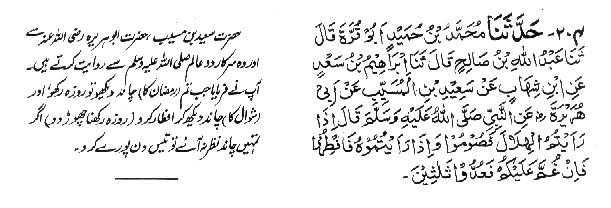 ۲۰م۔ حَدَّثَنَا مُحَمَّدُ بْنُ حُمَيْدٍ اَبُوْ قُرَّةَ قَالَ
ثَنَا عَبْدُ اللهِ بْنُ صَالِحٍ قَالَ ثَنَا اِبْرَاهِيْمُ بْنُ سَعْدٍ
عَنِ ابْنِ شِهَابٍ عَنْ سَعِيْدِ بْنِ الْمُسَيِّبِ عَنْ اَبِيْ
هُرَيْرَةَ رضـ عَنِ النَّبِيِّ صَلَّى اللهُ عَلَيْهِ وَسَلَّمَ قَالَ اِذَا
رَاَيْتُمُ الْهِلَالَ فَصُوْمُوْا وَاِذَا رَاَيْتُمُوْهُ فَافْطِرُوْا
فَاِنْ غُمَّ عَلَيْكُمْ فَعُدُّوْا ثَلٰثِيْنَ۔
حضرت سعید بن مسیب، حضرت ابوہریرہ رضی اللہ عنہ سے
اور وہ سرکار دو عالم صلی اللہ علیہ وسلم سے روایت کرتے ہیں۔
آپ نے فرمایا جب تم (رمضان کا) چاند دیکھو تو روزہ رکھو اور
شوال کا) چاند دیکھ کر افطار کرو (روزہ رکھنا چھوڑ دو) اگر
تمہیں چاند نظر نہ آئے تو تیس دن پورے کرو۔